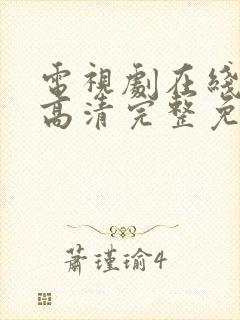 電視劇在綫
高清完整免
蕭瑾瑜4